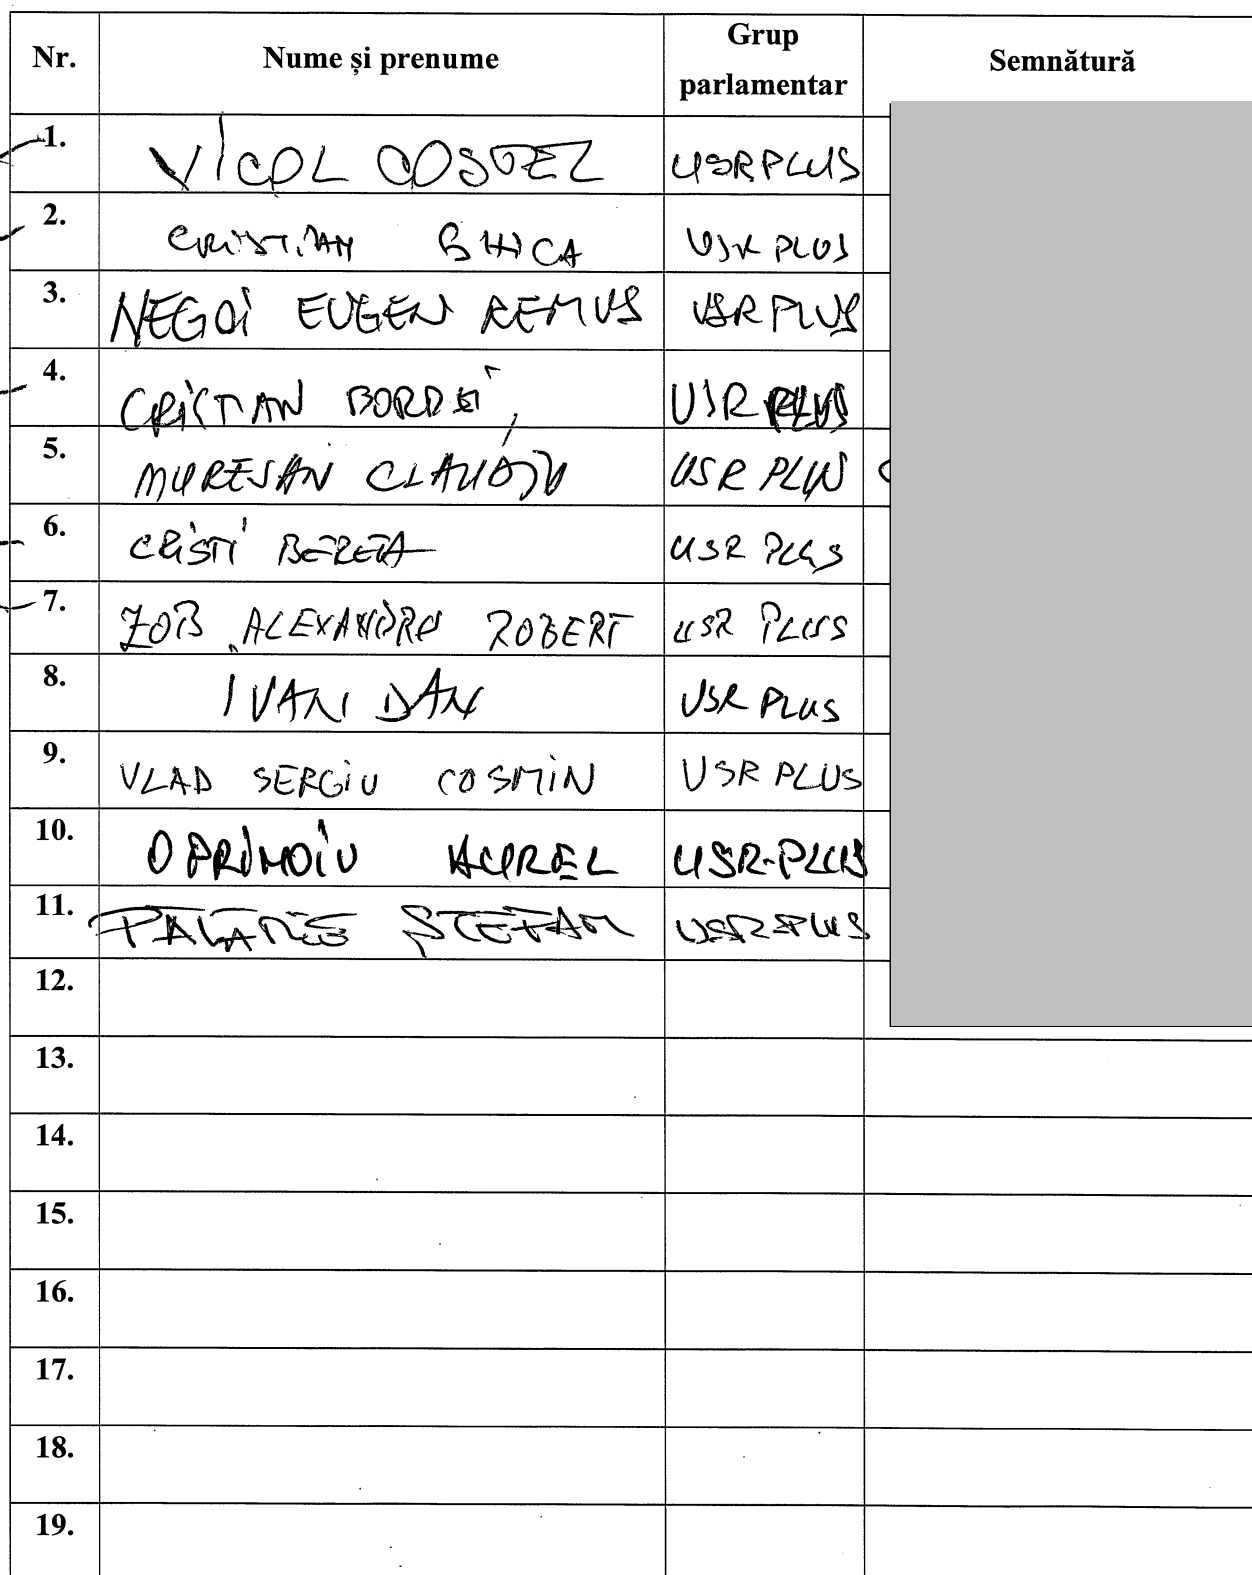 Nr. Nume și prenume Grup parlamentar Semnătură
1. VICOL COSTEL USRPLUS
2. CRISTIAN BHCA USR PLUS
3. NEGOI EUGEN REMUS USR PLUS
4. CRISTIAN BORDEI USR PLUS
5. MURESAN CLAUDIU USR PLUS
6. CRISTI BERETA USR PLUS
7. ZOB ALEXANDRU ROBERT USR PLUS
8. IVAN DAN USR PLUS
9. VLAD SERGIU COSMIN USR PLUS
10. OPRINOIU AUREL USR-PLUS
11. PALARIE ȘTEFAN USR PLUS
12.
13.
14.
15.
16.
17.
18.
19.